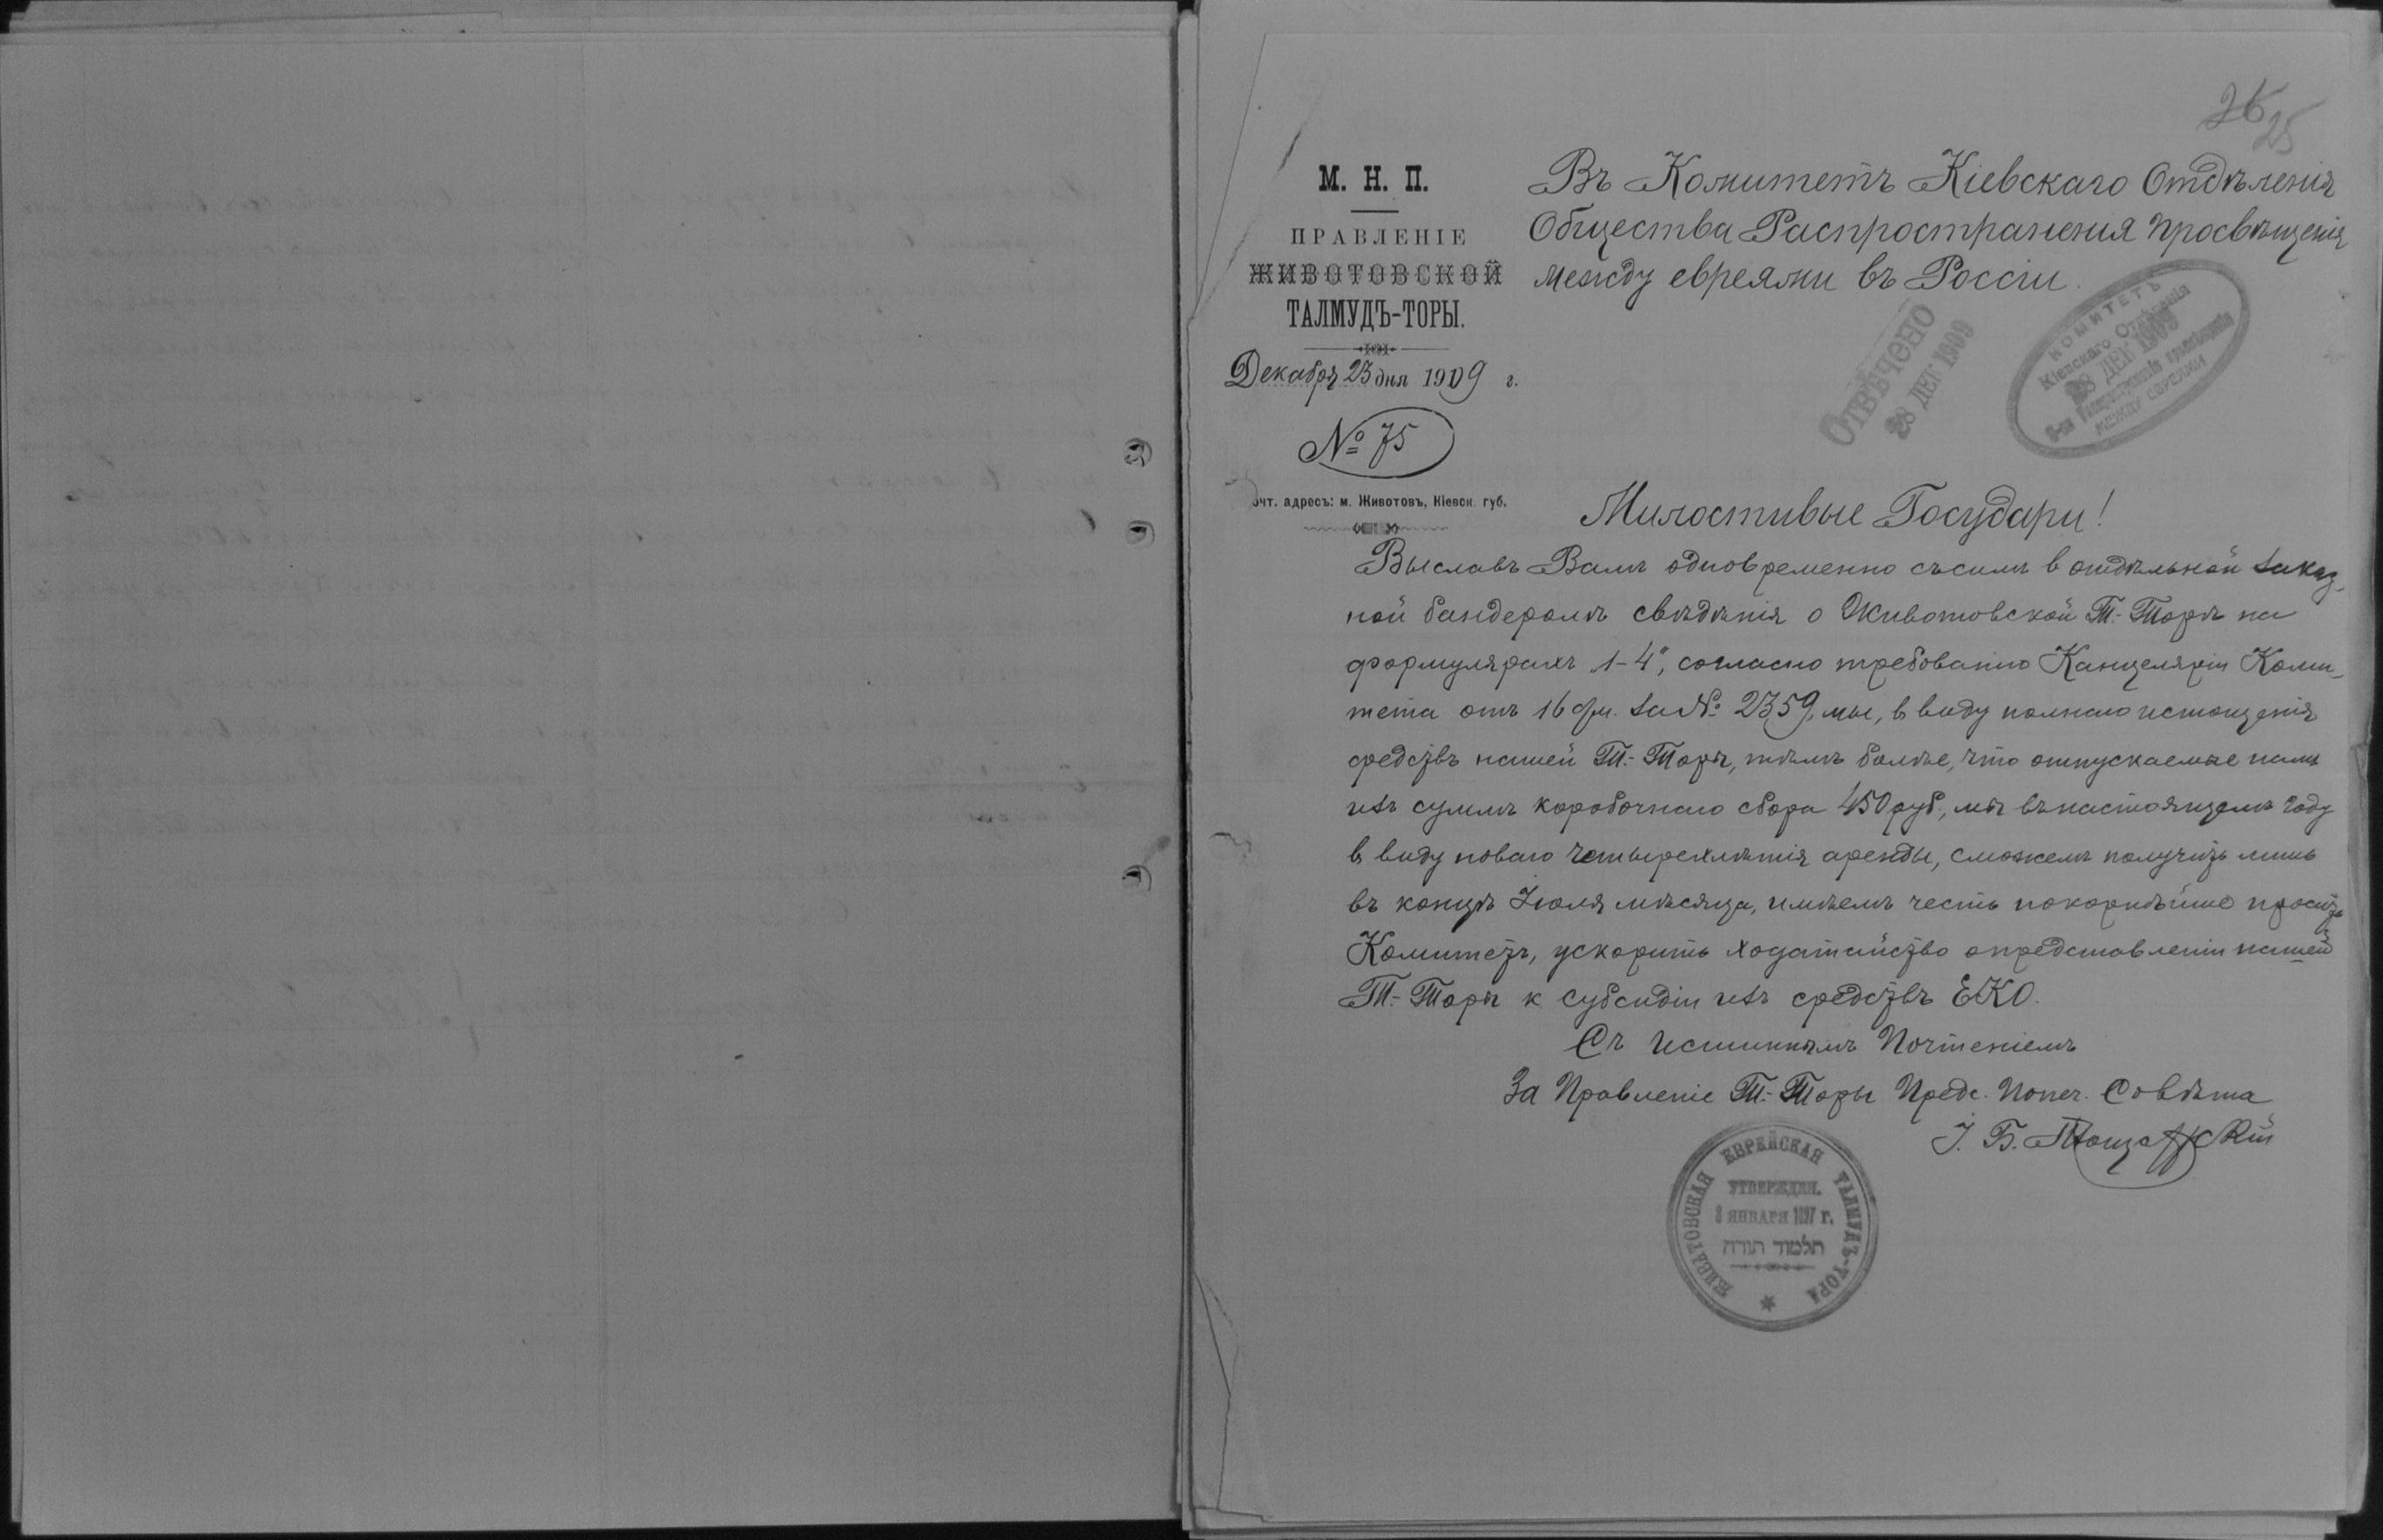 26
25
М. Н. П.
ПРАВЛЕНІЕ
ЖИВОТОВСКОЙ
ТАЛМУДЪ-ТОРЫ.
Декабря 23 дня 1909 г.
№ 75
очт. адресъ: м. Животовъ, Кіевск. губ.
Въ Комитетъ Кіевскаго Отдѣленія
Общества Распространенія Просвѣщенія
между евреями въ Россіи.
ОТВѢЧЕНО
28 ДЕК 1909
КОМИТЕТЪ
Кіевскаго Отдѣленія
28 ДЕК 1909
О-ва Распространенія просвѣщенія
МЕЖДУ ЕВРЕЯМИ
Милостивые Государи!
Выславъ Вамъ одновременно съ симъ в отдѣльной заказ-
ной бандеролѣ свѣдѣнія о Животовской Т.-Торѣ на
формулярахъ „1-4", согласно требованію Канцеляріи Коми-
тета отъ 16 с/м. за № 2359, мы, в виду полнаго истощенія
средствъ нашей Т.-Торы, тѣмъ болѣе, что отпускаемые намъ
изъ суммъ коробочнаго сбора 450 руб., мы въ настоящемъ году
в виду новаго четырехлѣтія аренды, сможемъ получить лишь
въ концѣ Іюля мѣсяца, имѣемъ честь покорнѣйше просить
Комитетъ, ускорить ходатайство о представленіи нашей
Т.-Торы к субсидіи изъ средствъ ЕКО.
Съ истиннымъ Почтеніемъ
За Правленіе Т.-Торы Предс. Попеч. Совѣта
І. Б.
ЖИВАТОВСКАЯ ЕВРЕЙСКАЯ ТАЛМУДЪ-ТОРА
УТВЕРЖДЕН.
8 ЯНВАРЯ 1897 г.
תלמוד תורה